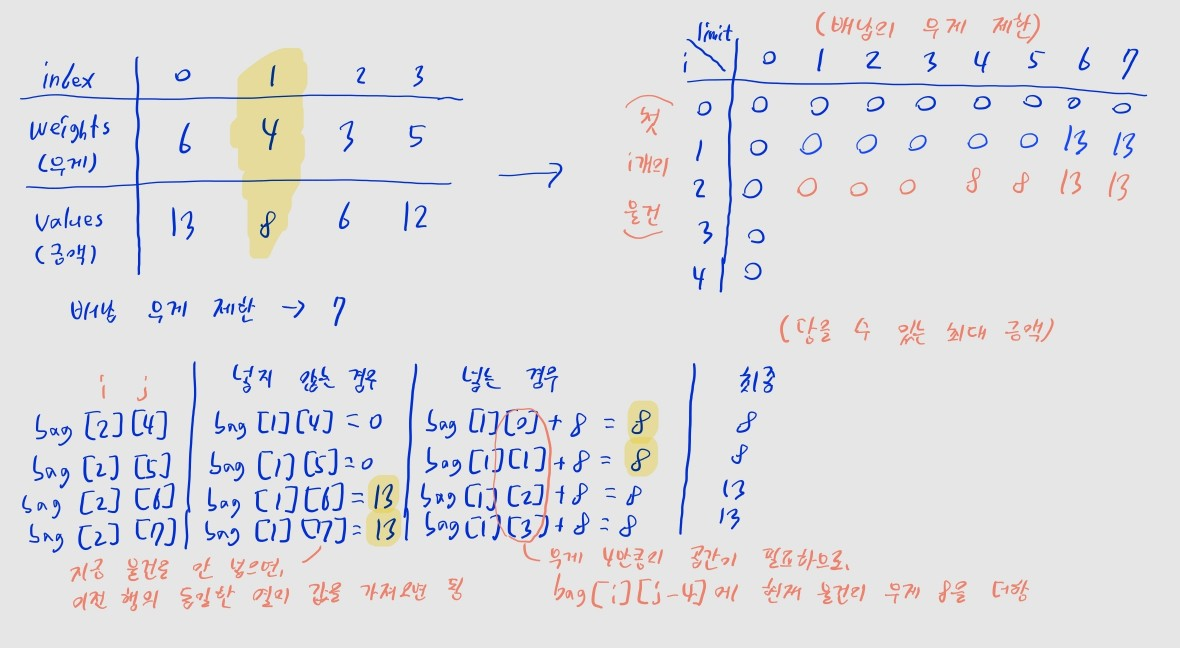 index 0 1 2 3
weights 6 4 3 5
(무게)
values 13 8 6 12
(금액)
배낭 무게 제한 → 7
(배낭의 무게 제한)
limit
i 0 1 2 3 4 5 6 7
0 0 0 0 0 0 0 0 0
1 0 0 0 0 0 0 13 13
2 0 0 0 0 8 8 13 13
3 0
4 0
(첫
i개의
물건)
(담을 수 있는 최대 금액)
i j 넣지 않는 경우 넣는 경우 최종
bag [2][4] bag [1][4] = 0 bag [1][0] + 8 = 8 8
bag [2][5] bag [1][5] = 0 bag [1][1] + 8 = 8 8
bag [2][6] bag [1][6] = 13 bag [1][2] + 8 = 8 13
bag [2][7] bag [1][7] = 13 bag [1][3] + 8 = 8 13
지금 물건을 안 넣으면,
이전 행의 동일한 열의 값을 가져오면 됨
무게 4만큼의 공간이 필요하므로,
bag[i][j-4]에 현재 물건의 무게 8을 더함